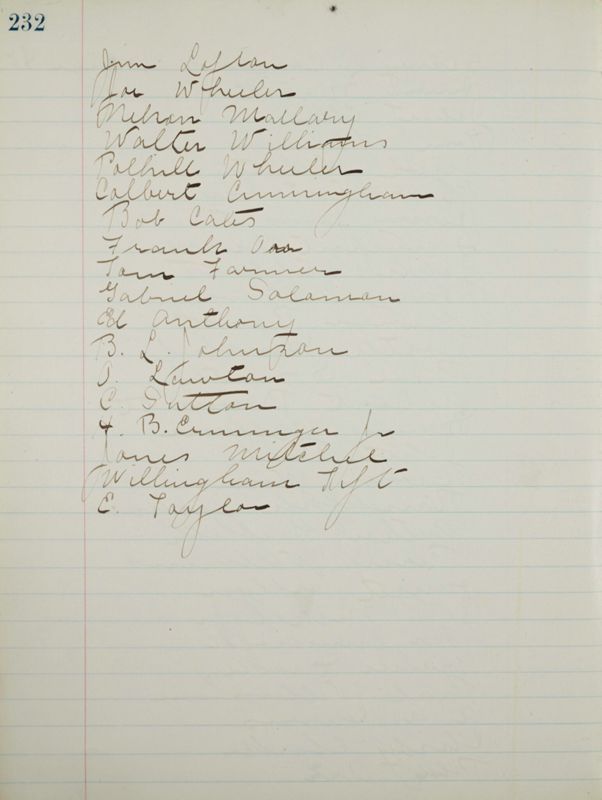 232
Jim Lofton
Joe Wheeler
Nelson Mallary
Walter Williams
Polhill Wheeler
Colbert Cunningham
Bob Cates
Frank
Tom Farmer
Gabriel Solomon
Ed Anthony
B. L. Johnson
O. Lawton
C. Sutton
H. B. Erminger Jr
Jones Mitchel
Willingham Tift
E. Taylor